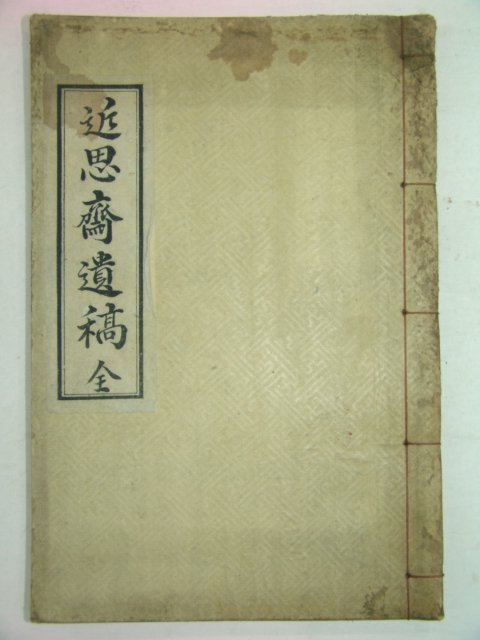 近思齋遺稿全